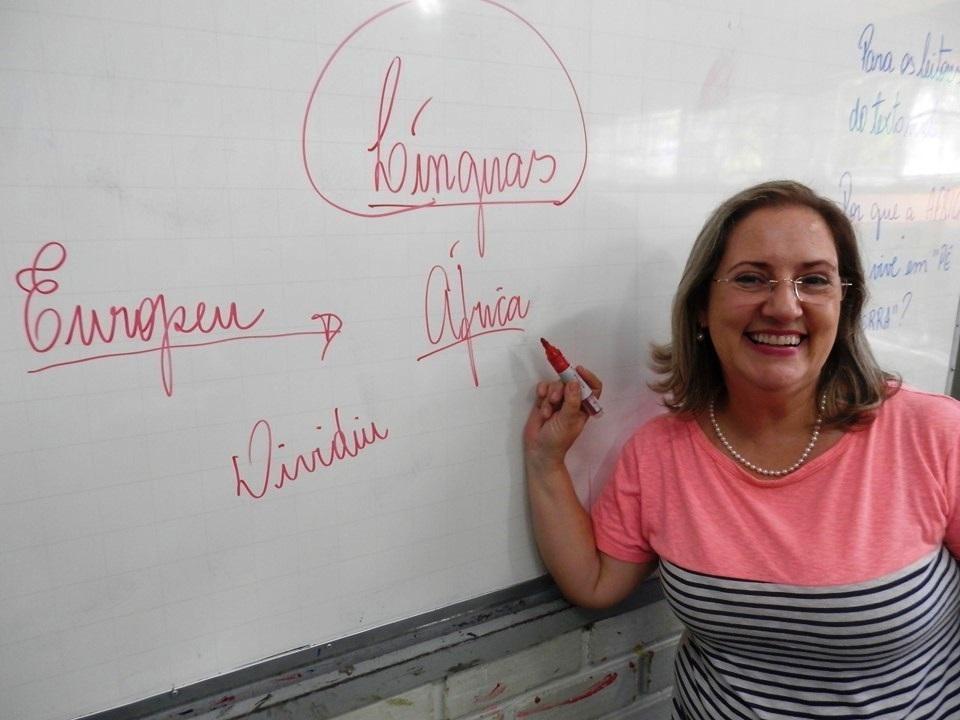 Línguas
Europeu → África
Dividiu
Para os
do texto
Por que a
vive em "PÉ
ERRA"?